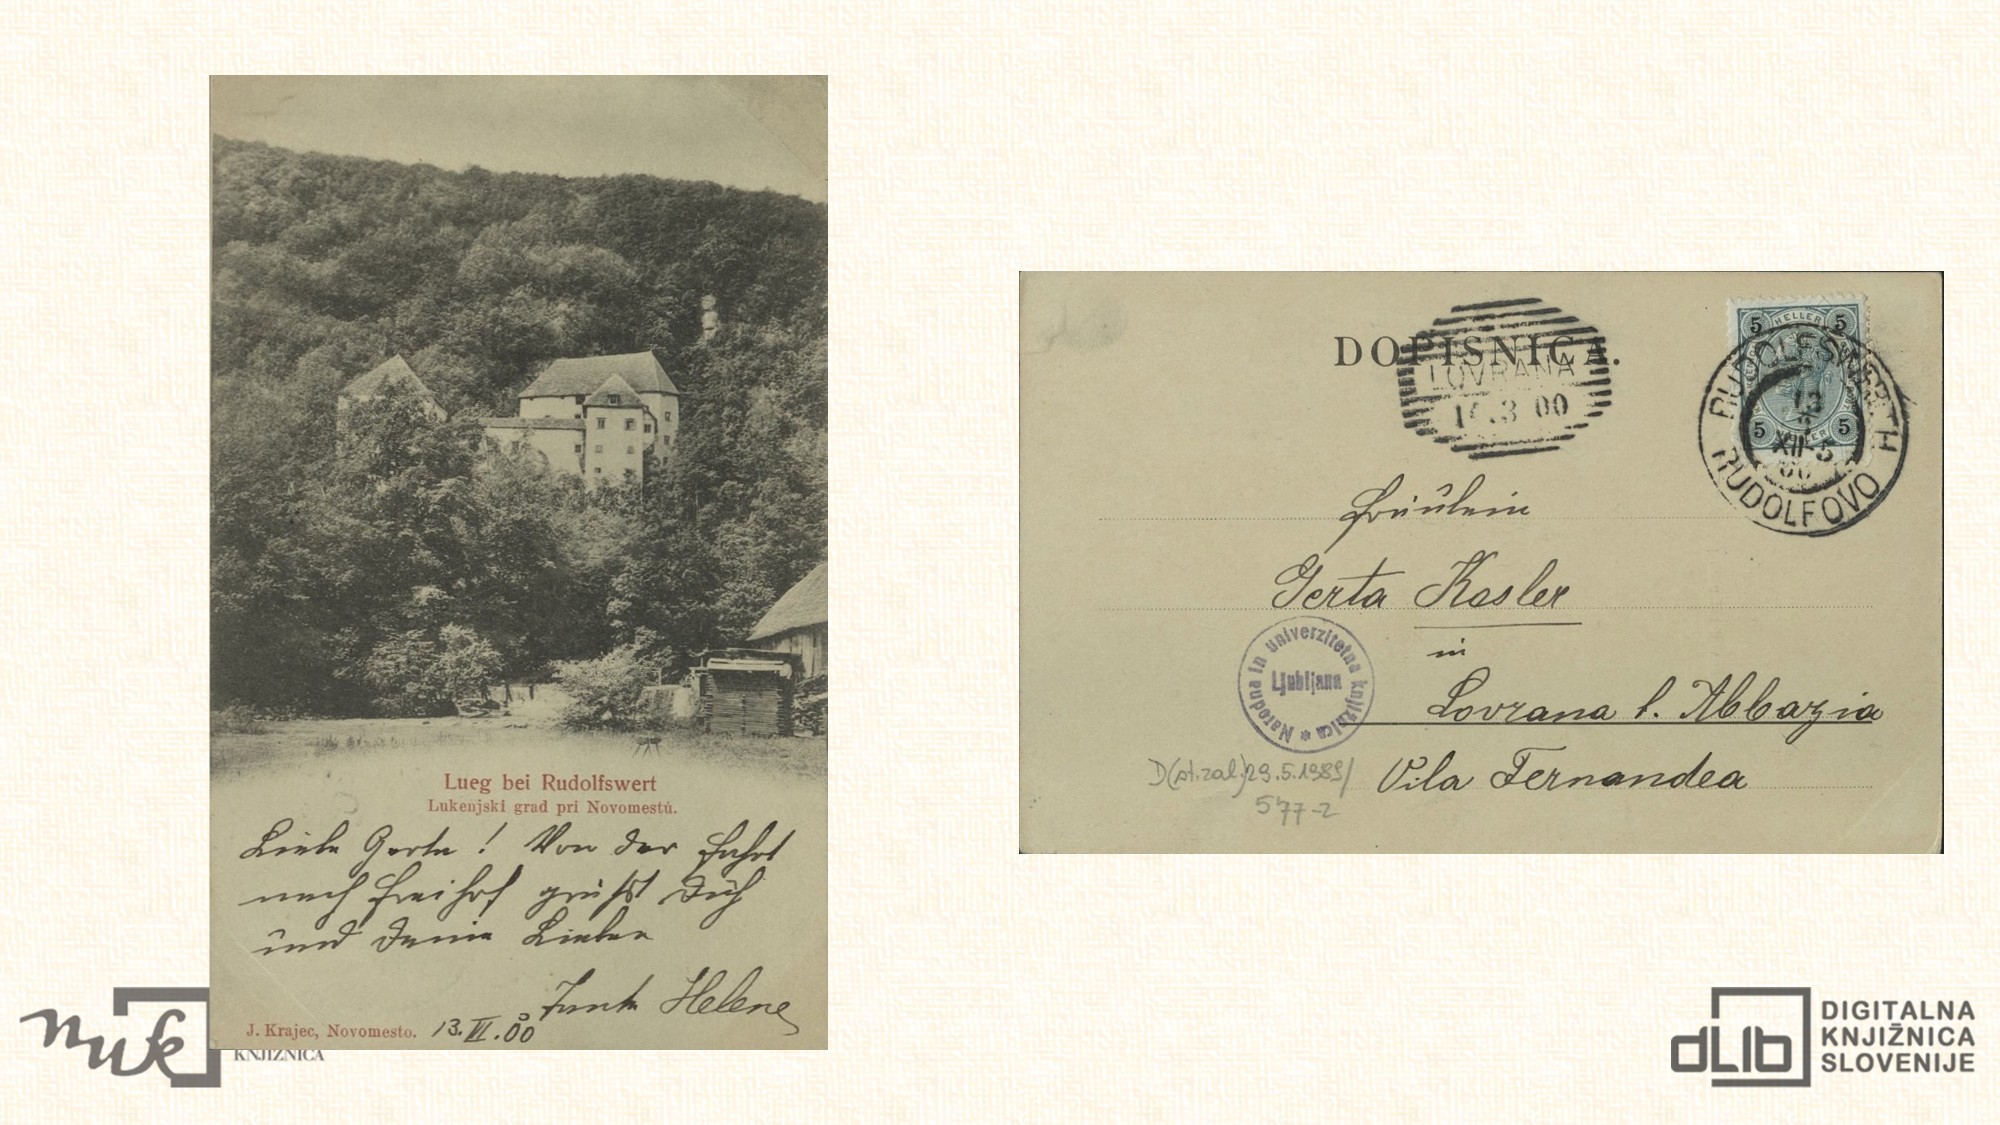 Lueg bei Rudolfswert
Lukenjski grad pri Novomestu.
Liebe Gerta! Von der Fahrt
nach Freihof grüßt Dich
und deine Lieben
Helene
J. Krajec, Novomesto. 13. .00
KNJIŽNICA
nuk
DOPISNICA.
LOVRANA
.3 00
5 HELLER 5
5 5
RUDOLFSWERTH
13
3
XII-5
00
RUDOLFOVO
Fräulein
Gerta Kosler
in
Lovrana b. Abbazia
Vila Fernandea
Narodna in univerzitetna knjižnica *
Ljubljana
D(st.zal.)29.5.1989/
577-2
dLib
DIGITALNA
KNJIŽNICA
SLOVENIJE